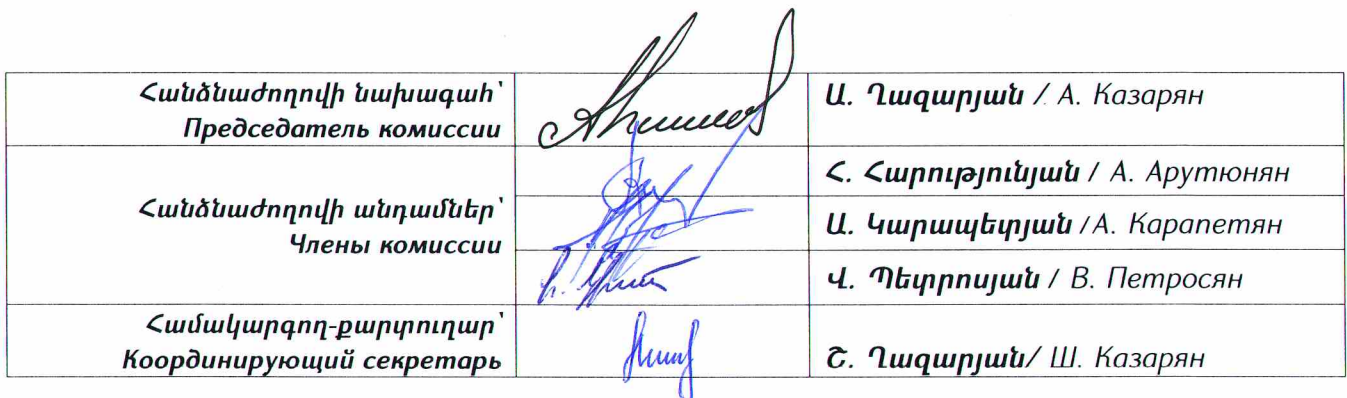 Հանձնաժողովի նախագահ՝
Председатель комиссии
Ա. Ղազարյան / А. Казарян
Հանձնաժողովի անդամներ՝
Члены комиссии
Հ. Հարությունյան / А. Арутюнян
Ա. Կարապետյան /А. Карапетян
Վ. Պետրոսյան / В. Петросян
Համակարգող-քարտուղար՝
Координирующий секретарь
Շ. Ղազարյան/ Ш. Казарян